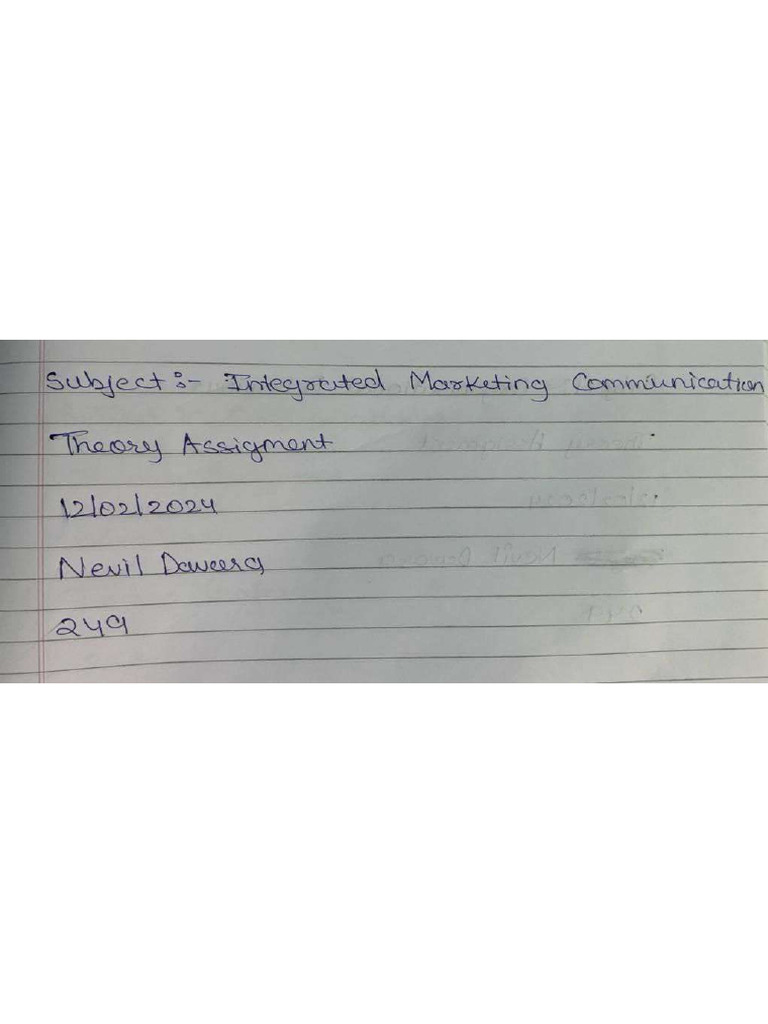 Subject :- Integrated Marketing Communication
Theory Assigment
12/02/2024
Nevil
249